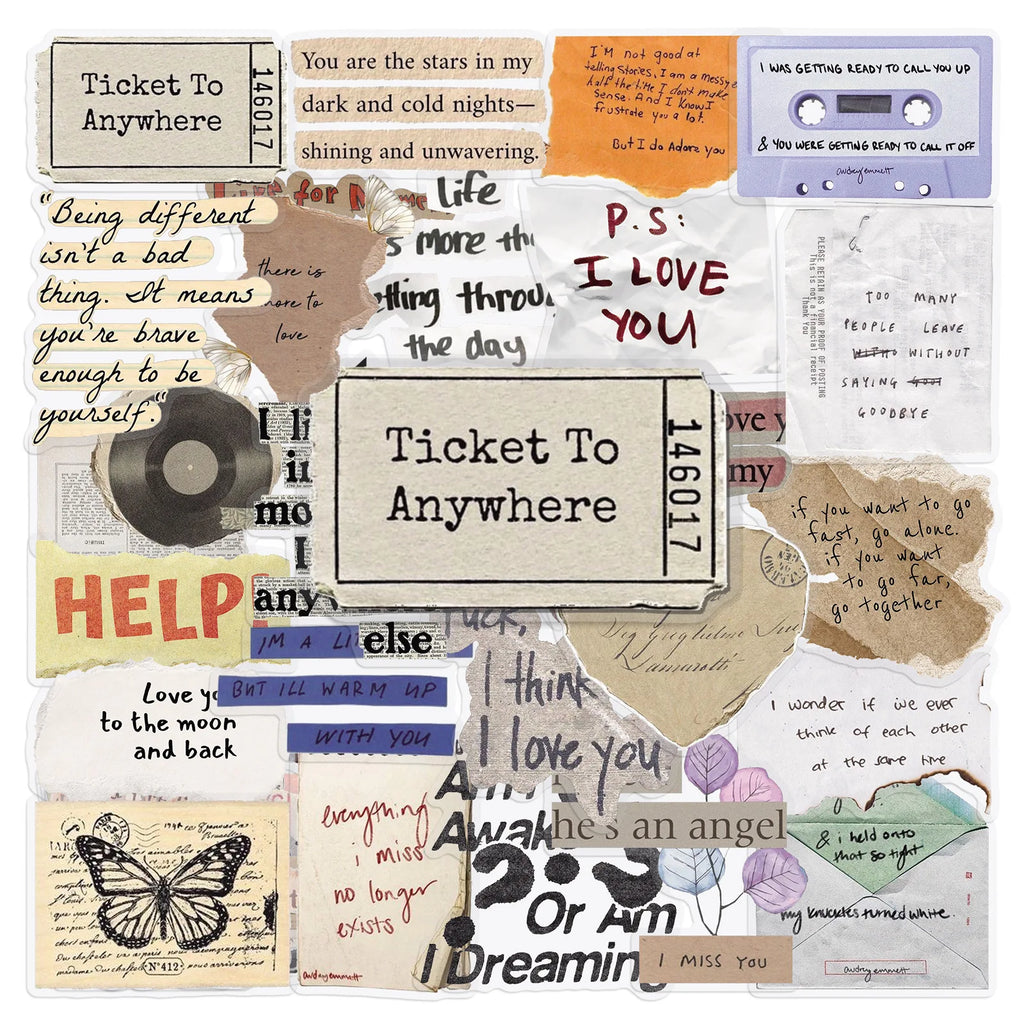 Ticket To
Anywhere
146017
You are the stars in my
dark and cold nights—
shining and unwavering.
I'M not good at
telling Stories, I am a messy
half the time I don't make
sense. And I know I
frustrate you a lot.
But I do Adore you
I WAS GETTING READY TO CALL YOU UP
& YOU WERE GETTING READY TO CALL IT OFF
audrey emmett
Live for
"Being different
isn't a bad
thing. It means
you're brave
enough to be
yourself."
there is
more to
love
life
more
the day
P.S:
I LOVE
YOU
PLEASE RETAIN AS YOUR PROOF OF POSTING
This is not a financial receipt
Thank You
TOO MANY
PEOPLE LEAVE
WITHOUT
SAYING
GOODBYE
Ticket To
Anywhere
146017
my
if you want to go
fast, go alone.
if you want
to go far,
go together
HELP
I'M A
else
BUT ILL WARM UP
WITH YOU
I think
I love you
Love yo
to the moon
and back
I wonder if we ever
think of each other
at the same time
everything
i miss
no longer
exists
audrey emmett
Awak
he's an angel
Or Am
I Dreaming
I MISS YOU
& i held onto
that so tight
my knuckles turned white.
audrey emmett
Nº412